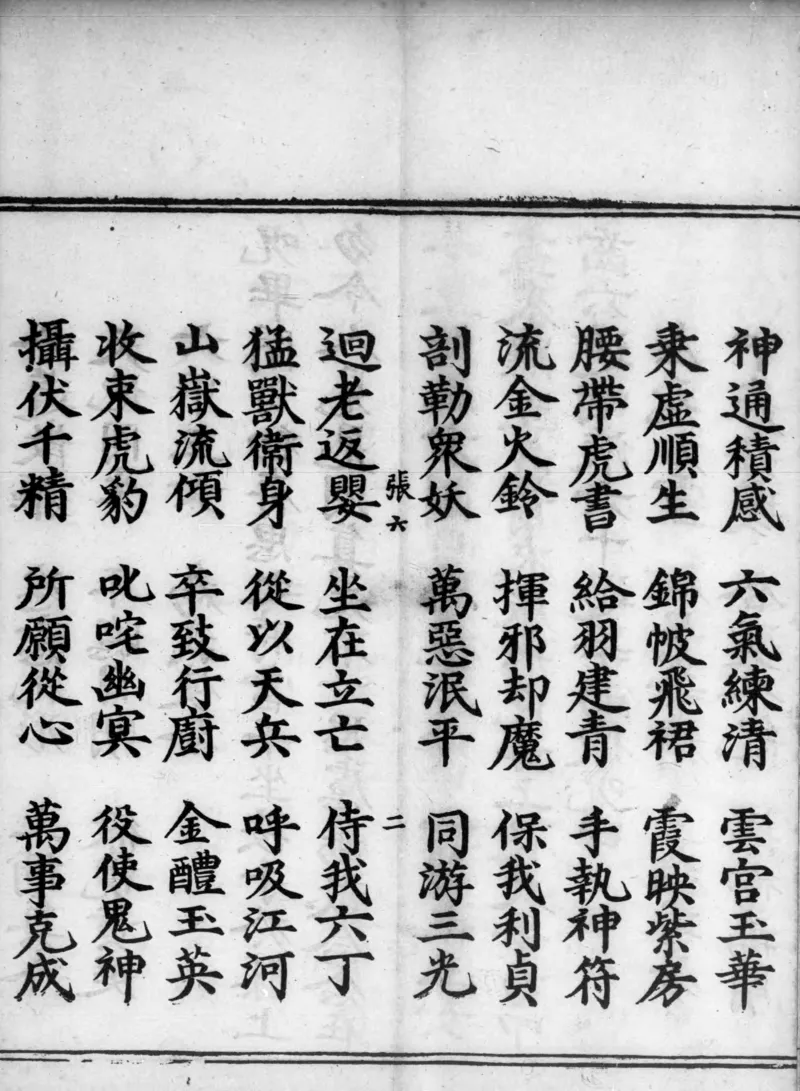 神通積感　六氣練清　雲宮玉華
乗虛順生　錦帔飛裙　霞映紫房
腰帶虎書　給羽建青　手執神符
流金火鈴　揮邪却魔　保我利貞
剖勒衆妖　萬惡泯平　同游三光
張六　二
迴老返嬰　坐在立亡　侍我六丁
猛獸衛身　從以天兵　呼吸江河
山嶽流傾　卒致行廚　金醴玉英
收束虎豹　叱咤幽冥　役使鬼神
攝伏千精　所願從心　萬事克成